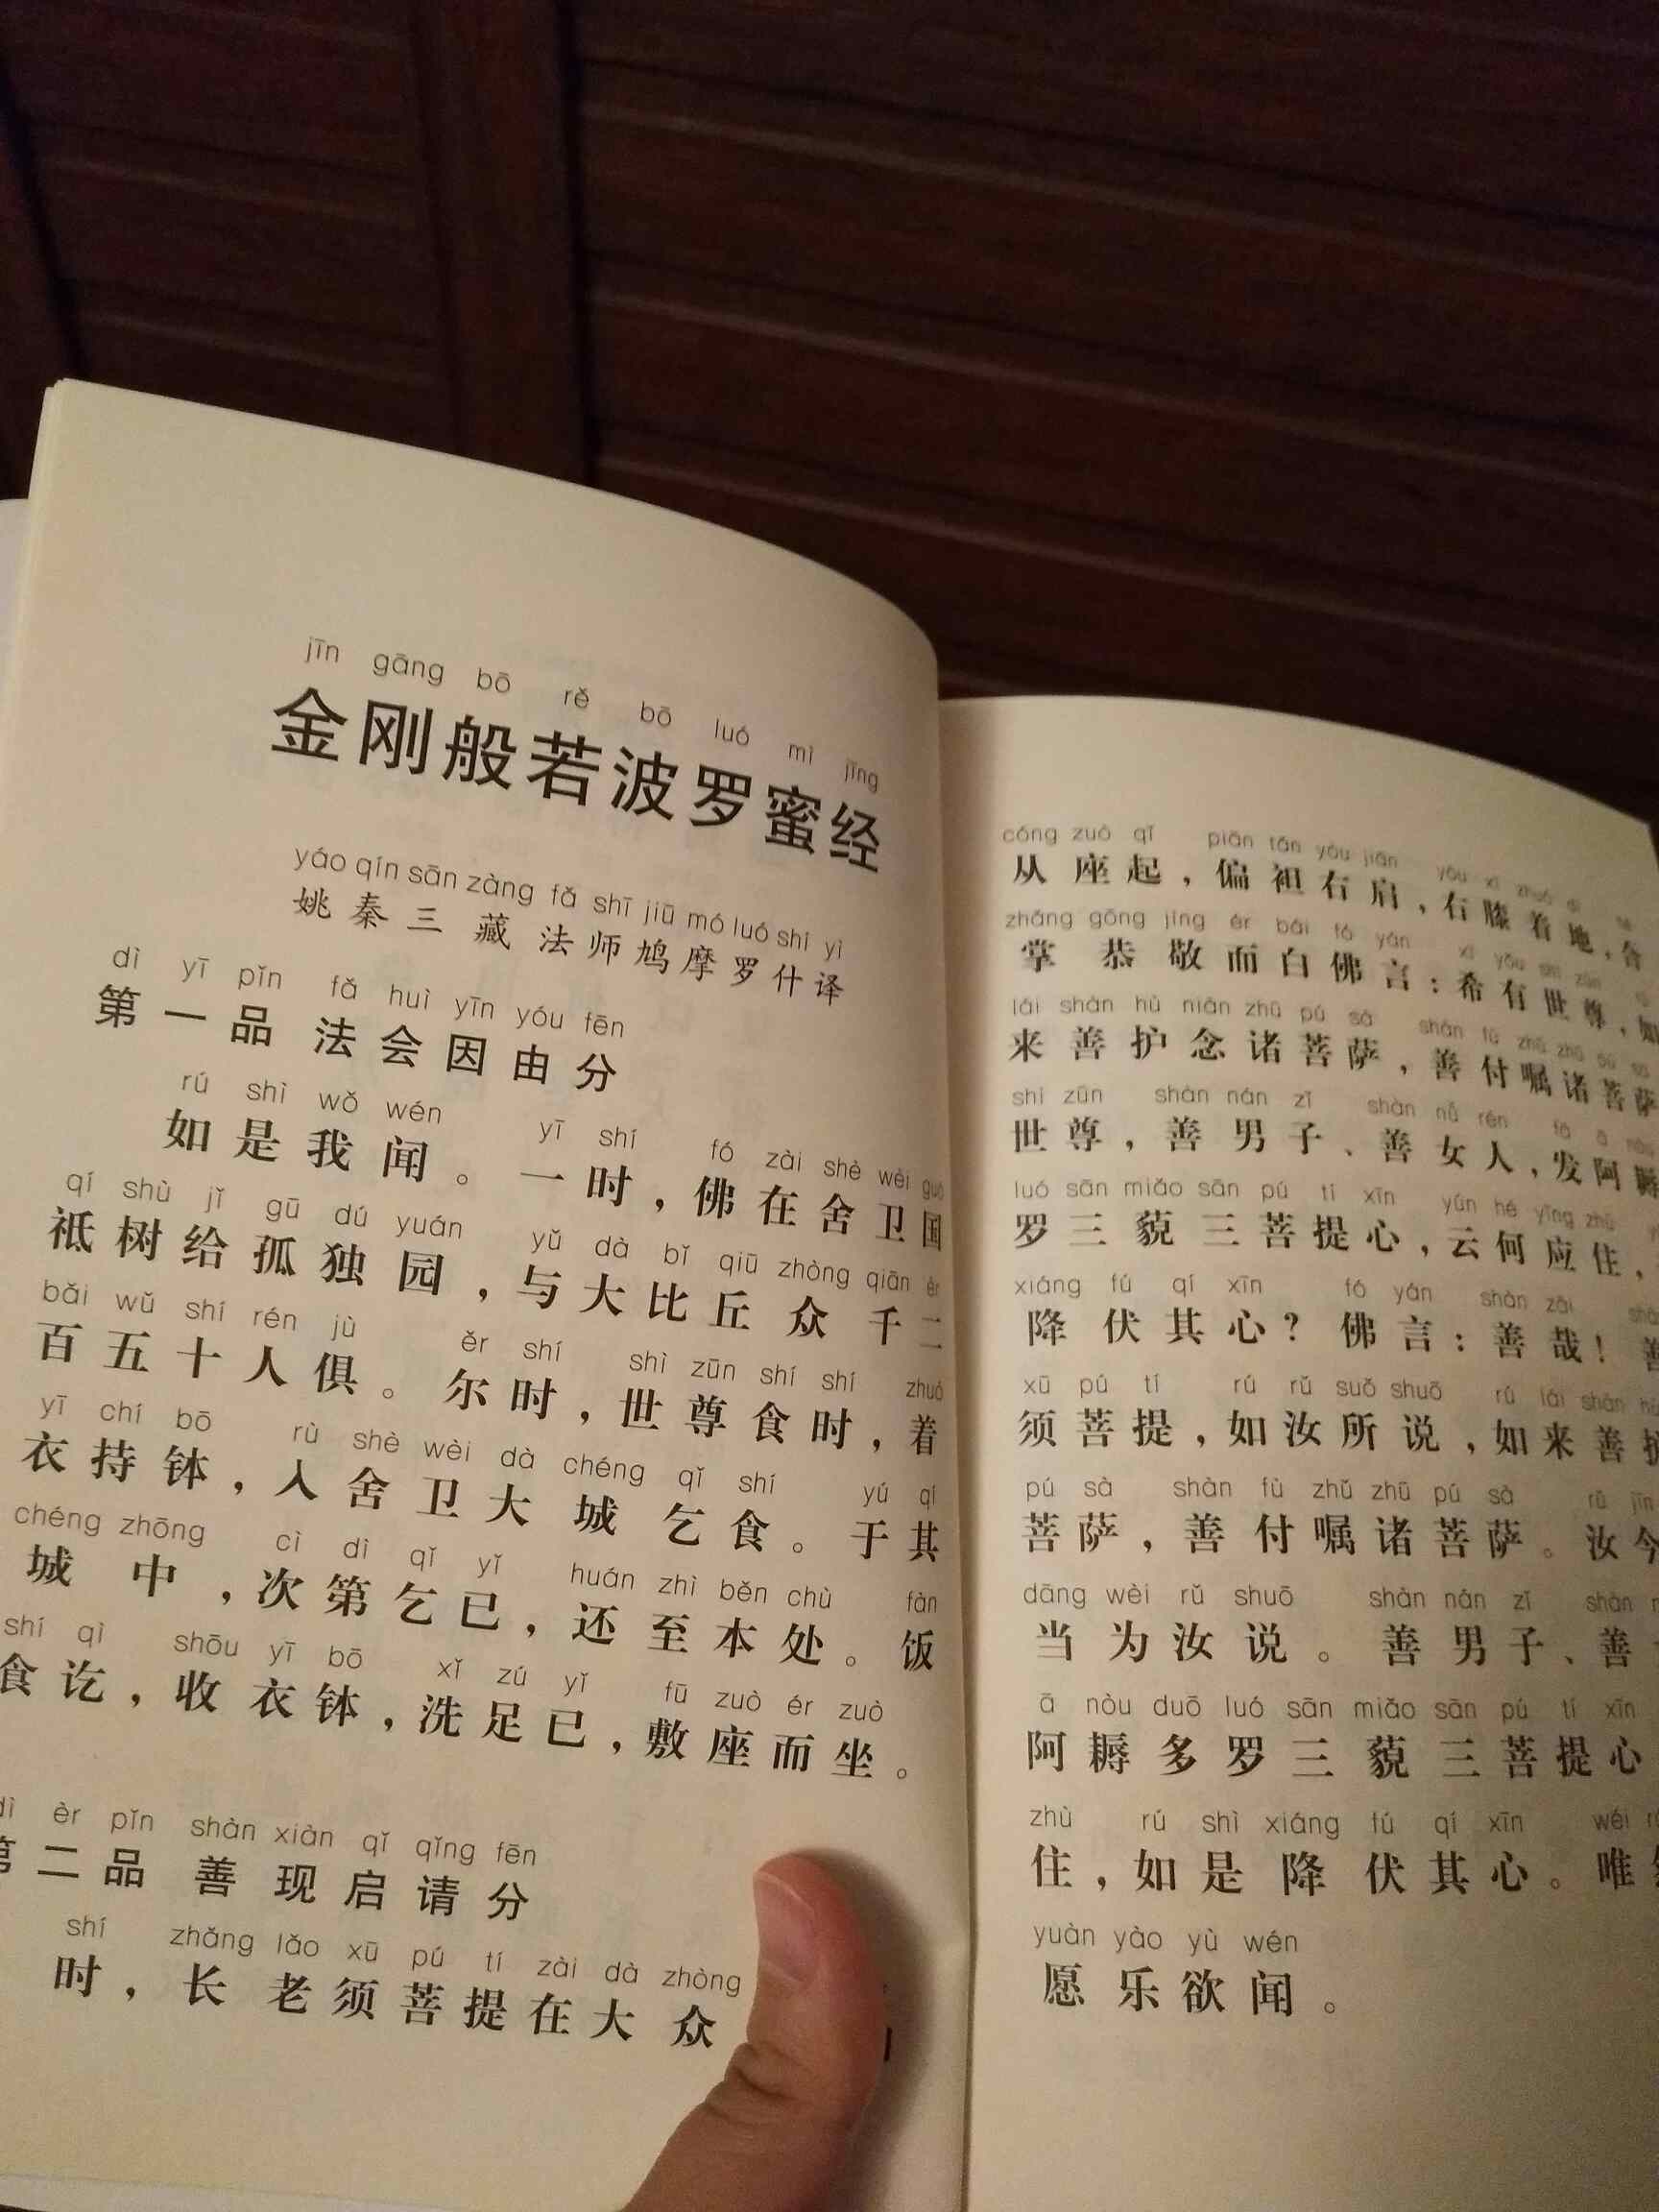 jīn gāng bō rě bō luó mì jīng
金刚般若波罗蜜经
yáo qín sān zàng fǎ shī jiū mó luó shí yì
姚秦三藏法师鸠摩罗什译
dì yī pǐn fǎ huì yīn yóu fēn
第一品 法会因由分
rú shì wǒ wén yī shí fó zài shè wèi guó
如是我闻。一时，佛在舍卫国
qí shù jǐ gū dú yuán yǔ dà bǐ qiū zhòng qiān èr
祗树给孤独园，与大比丘众千二
bǎi wǔ shí rén jù ěr shí shì zūn shí shí zhuó
百五十人俱。尔时，世尊食时，着
yī chí bō rù shè wèi dà chéng qǐ shí yú qí
衣持钵，入舍卫大城乞食。于其
chéng zhōng cì dì qǐ yǐ huán zhì běn chù fàn
城中，次第乞已，还至本处。饭
shí qì shōu yī bō xǐ zú yǐ fū zuò ér zuò
食讫，收衣钵，洗足已，敷座而坐。
èr pǐn shàn xiàn qǐ qǐng fēn
第二品 善现启请分
shí zhǎng lǎo xū pú tí zài dà zhòng
时，长老须菩提在大众
cóng zuò qǐ piān tǎn yòu jiān yòu xī zhuó dì
从座起，偏袒右肩，右膝着地，合
zhǎng gōng jìng ér bái fó yán xī yǒu shì zūn
掌恭敬而白佛言：希有世尊，如
lái shàn hù niàn zhū pú sà shàn fù zhǔ zhū pú sà
来善护念诸菩萨，善付嘱诸菩萨
shì zūn shàn nán zǐ shàn nǚ rén fā ā nòu
世尊，善男子、善女人，发阿耨
luó sān miǎo sān pú tí xīn yún hé yīng zhù
罗三藐三菩提心，云何应住，
xiáng fú qí xīn fó yán shàn zāi shàn
降伏其心？佛言：善哉！善
xū pú tí rú rǔ suǒ shuō rú lái shàn hù
须菩提，如汝所说，如来善护
pú sà shàn fù zhǔ zhū pú sà rǔ jīn
菩萨，善付嘱诸菩萨。汝今
dāng wèi rǔ shuō shàn nán zǐ shàn
当为汝说。善男子、善
ā nòu duō luó sān miǎo sān pú tí xīn
阿耨多罗三藐三菩提心
zhù rú shì xiáng fú qí xīn wéi
住，如是降伏其心。唯
yuàn yào yù wén
愿乐欲闻。